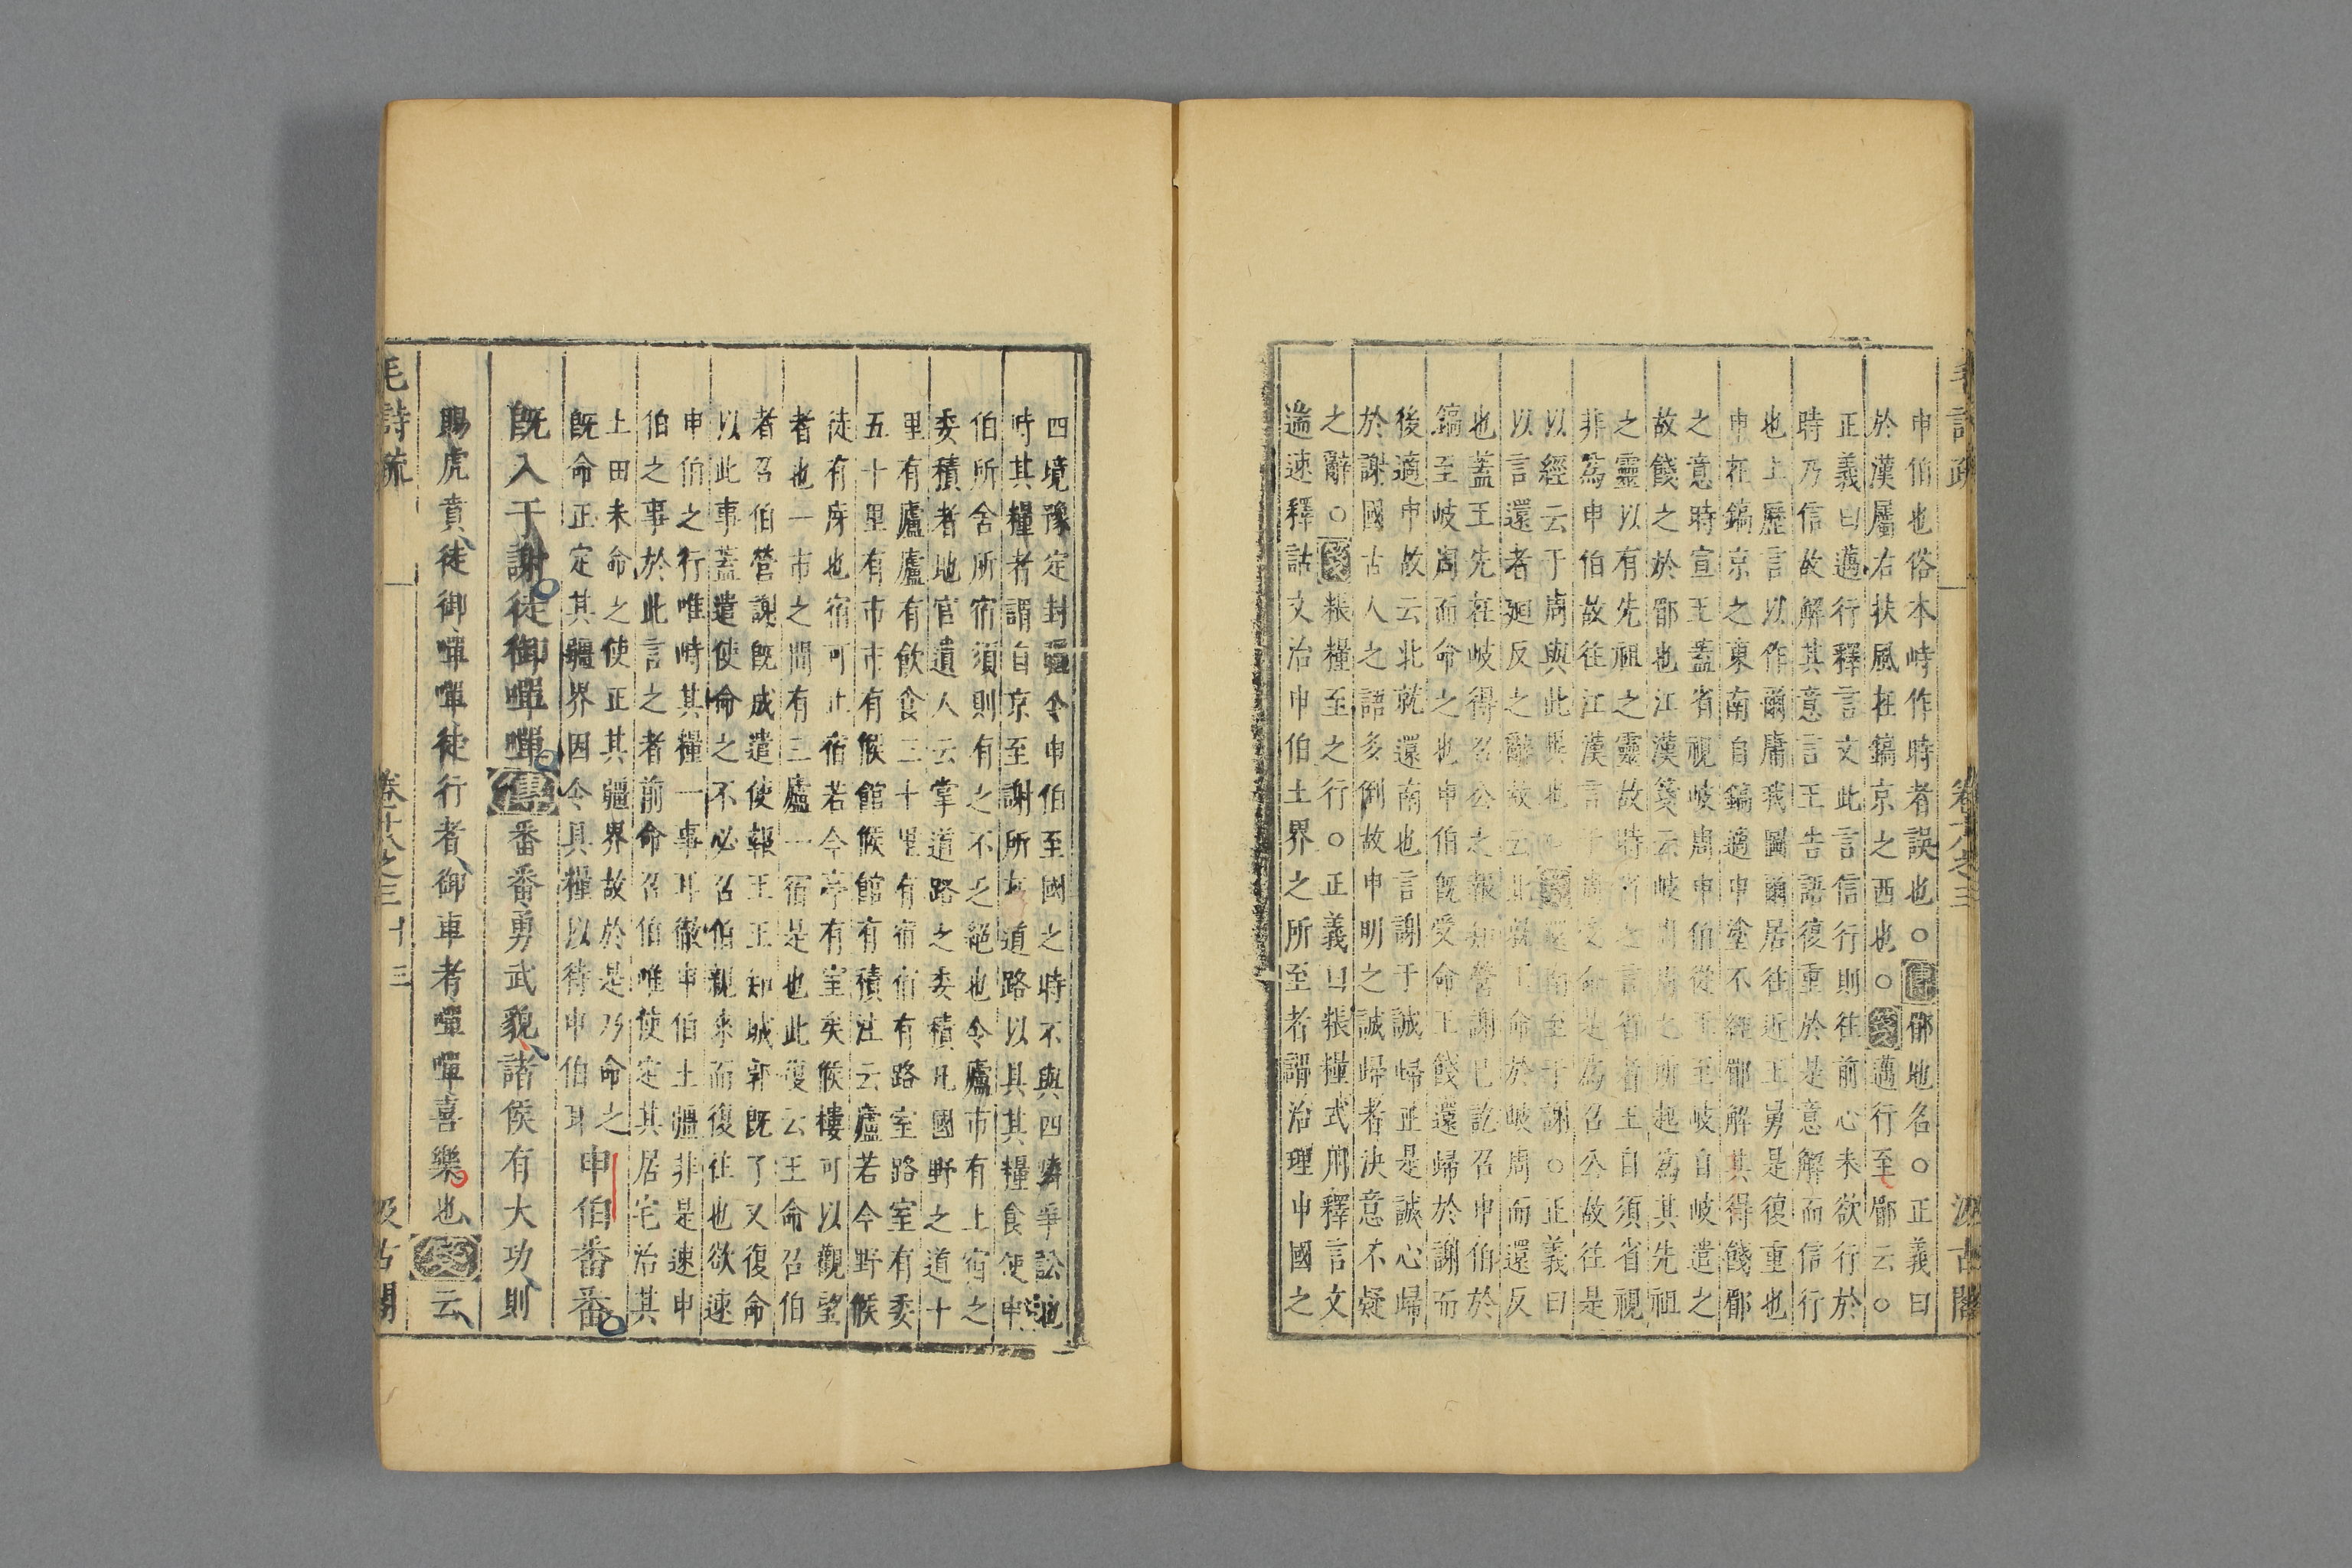 毛詩疏
卷十八之三
汲古閣
申伯也俗本峙作時者誤也○傳郿地名○正義曰
於漢屬右扶風在鎬京之西也○箋邁行至郿云○
正義曰邁行釋言文此言信行則往前心未欲行於
時乃信故解其意言王告語復重於是意解而信行
也上歷言以作爾庸我圖爾居往近王舅是復重也
申在鎬京之東南自鎬適申塗不經郿解其得餞郿
之意時宣王蓋省視岐周申伯從王至岐自岐遣之
故餞之於郿也江漢箋云岐周周之所起為其先祖
之靈以有先祖之靈故時省之言省者王自須省視
非為申伯故往江漢言于周受命是為召公故往是
以經云于周與此異也○箋還南至于謝○正義曰
以言還者廻反之辭故云北就王命於岐周而還反
也蓋王先在岐得召公之報知營謝已訖召申伯於
鎬至岐周而命之也申伯旣受命王餞還歸於謝而
後適申故云北就還南也言謝于誠歸正是誠心歸
於謝國古人之語多倒故申明之誠歸者決意不疑
之辭○箋粻糧至之行○正義曰粻糧式用釋言文
遄速釋詁文治申伯土界之所至者謂治理申國之
四境豫定封疆令申伯至國之時不與四隣爭訟也
時其糧者謂自京至謝所在道路以其其糧食使申
伯所舍所宿須則有之不乏絕也令廬市有上宿之
委積者地官遺人云掌道路之委積凡國野之道十
里有廬廬有飲食三十里有宿宿有路室路室有委
五十里有市市有候館候館有積注云廬若今野候
徒有庌也宿可止宿若今亭有室矣候樓可以觀望
者也一市之間有三廬一宿是也此復云王命召伯
者召伯營謝旣成遣使報王王知城郭旣了又復命
以此事蓋遣使命之不必召伯親來而復往也欲速
申伯之行唯時其糧一事耳徹申伯土疆非是速申
伯之事於此言之者前命召伯唯使定其居宅治其
上田未命之使正其疆界故於是乃命之
旣命正定其疆界因令具糧以待申伯耳
申伯番番
旣入于謝徒御嘽嘽傳番番勇武貌諸侯有大功則
賜虎賁徒御嘽嘽徒行者御車者嘽嘽喜樂也箋云
毛詩疏
卷十八之三
十三
汲古閣